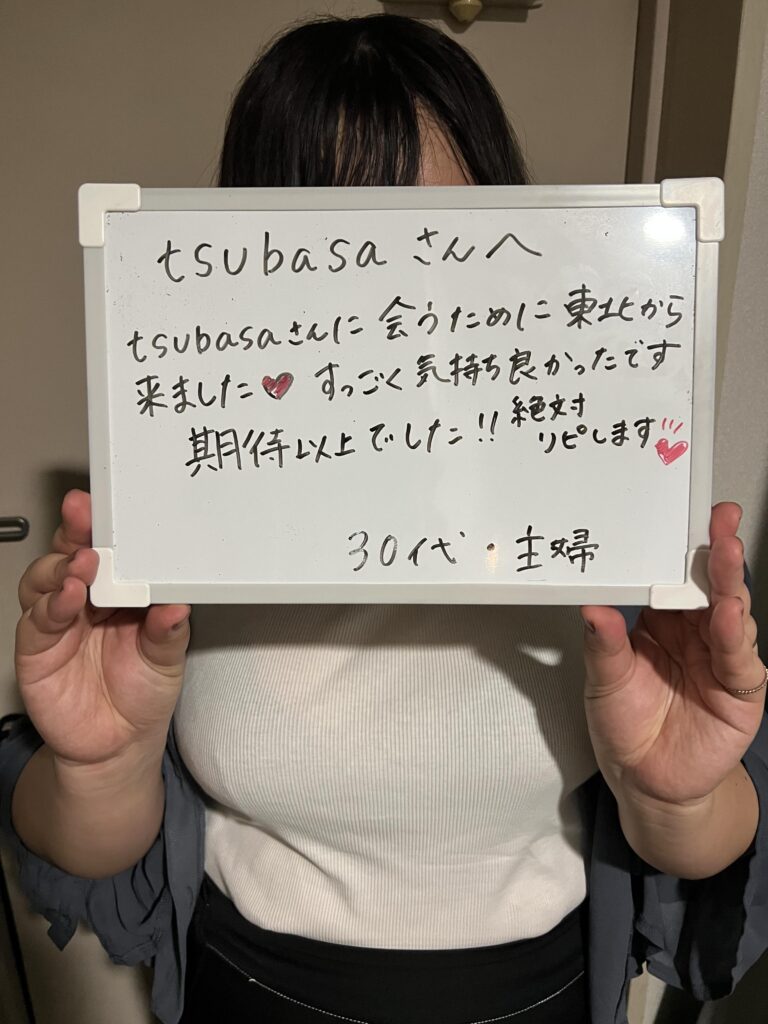 tsubasaさんへ
tsubasaさんに会うために東北から
来ました♥ すっごく気持ち良かったです
期待以上でした!! 絶対
リピします♥
30代・主婦